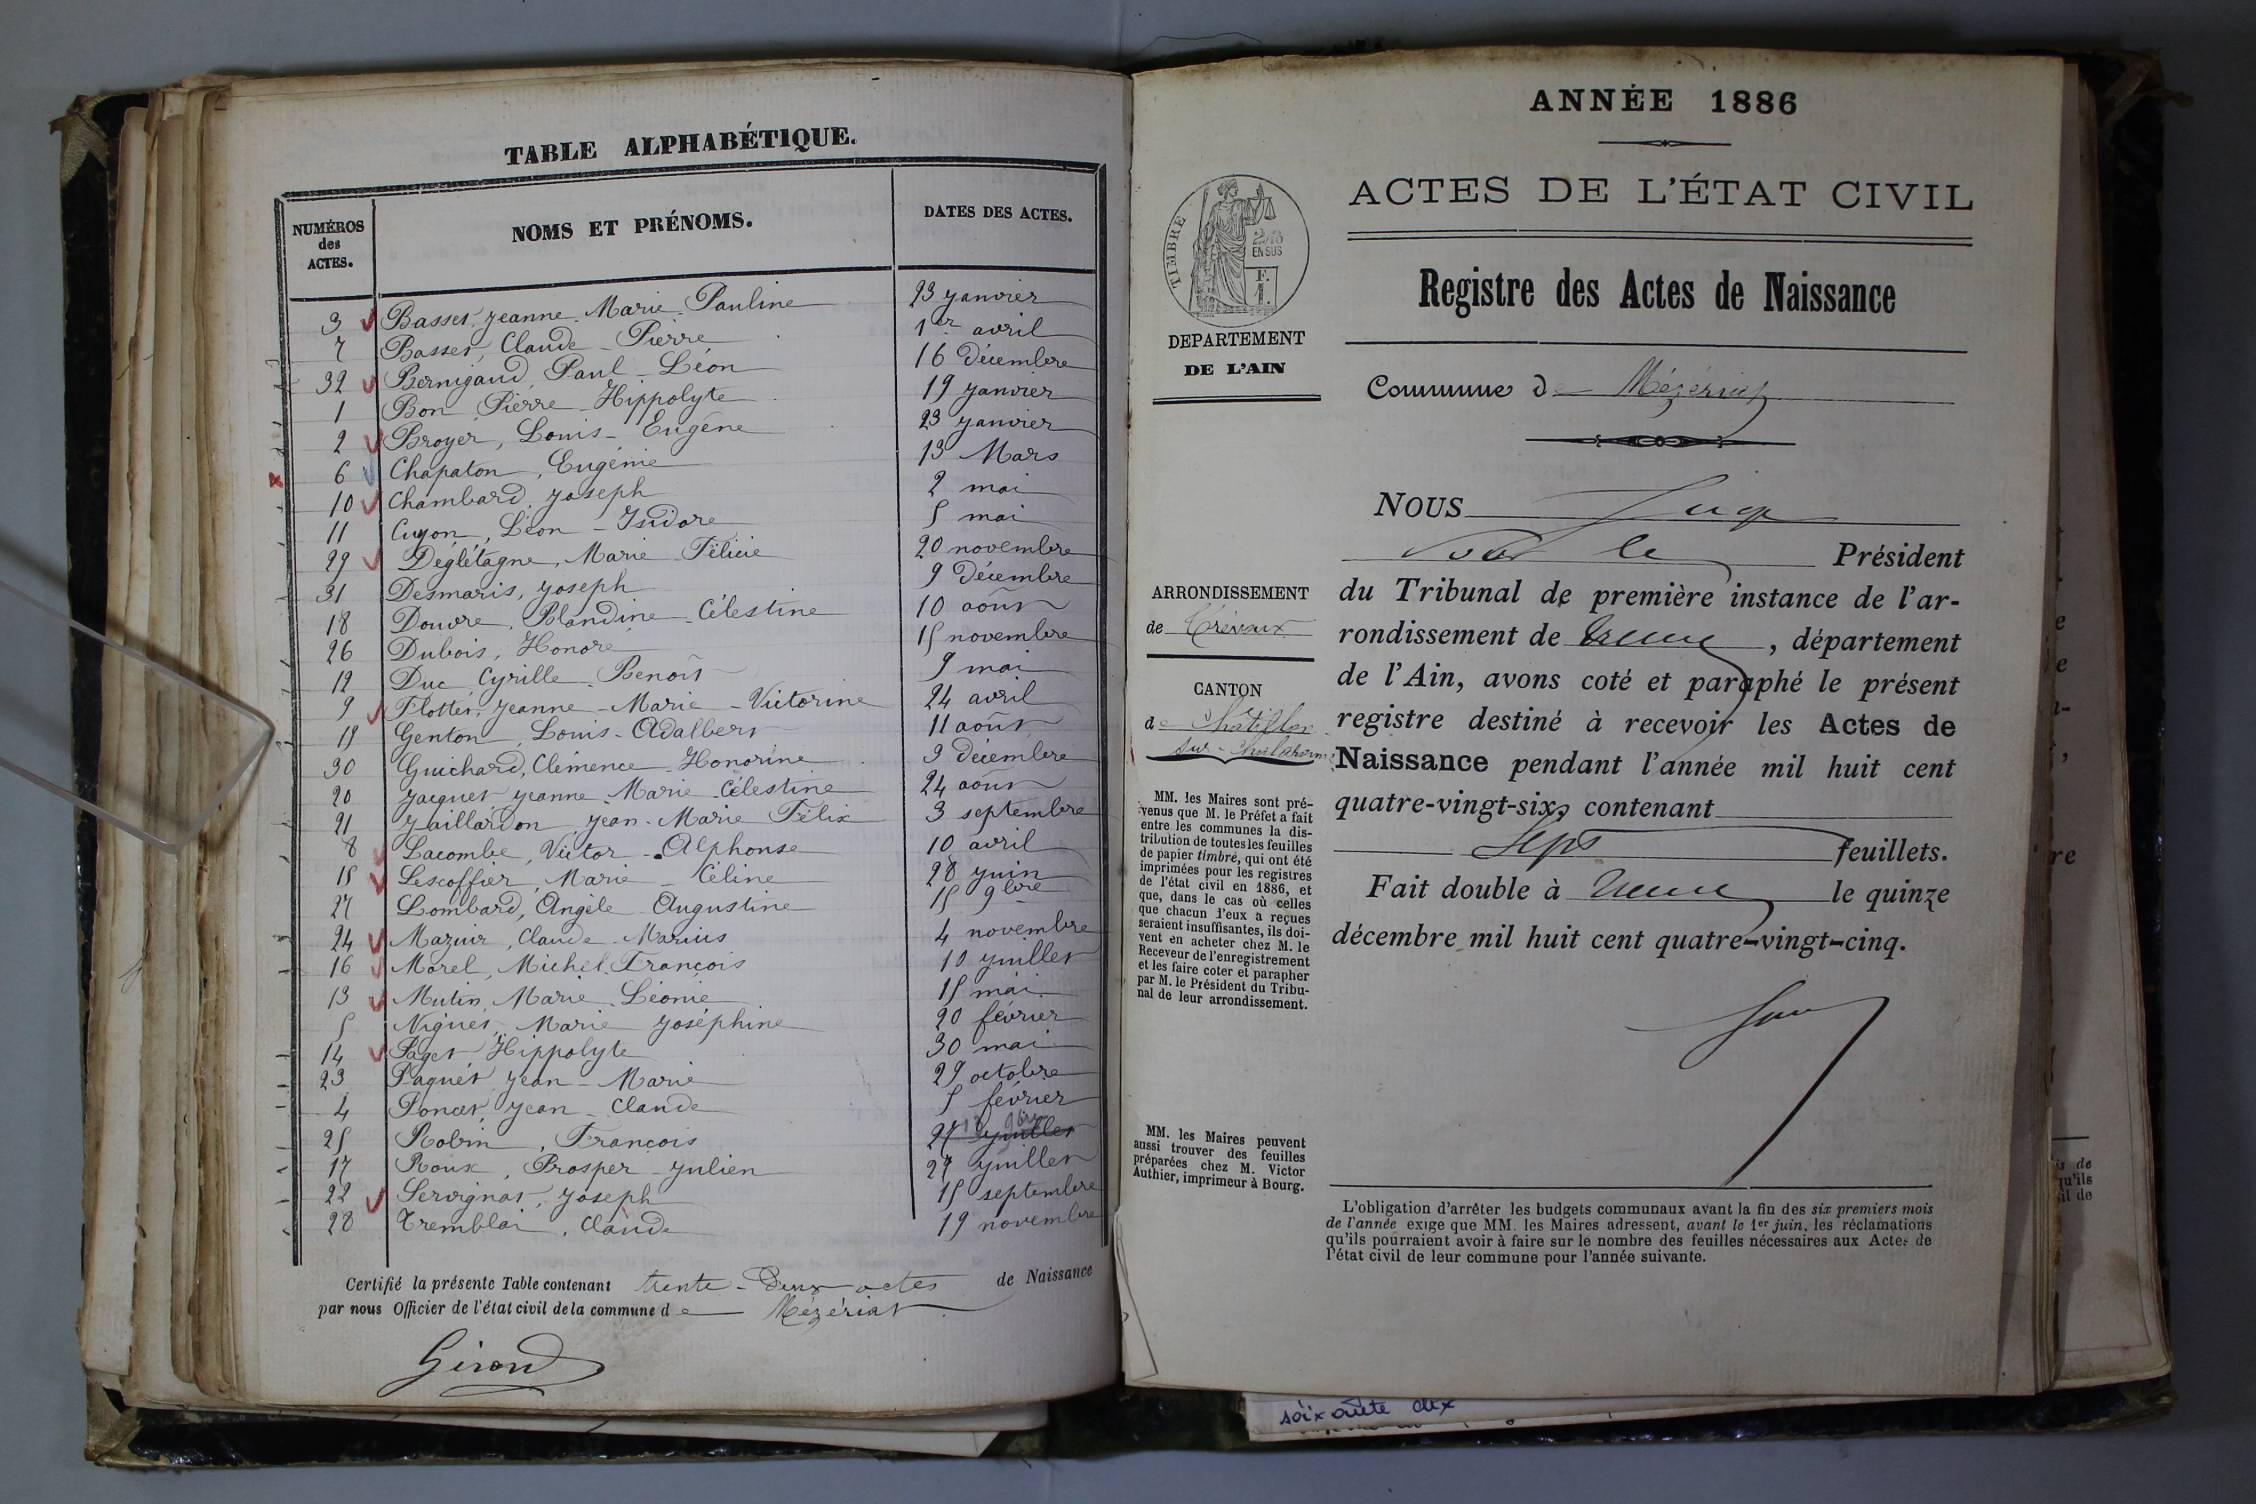 TABLE ALPHABÉTIQUE.
NUMÉROS des ACTES. NOMS ET PRÉNOMS. DATES DES ACTES.
3 Basset, Jeanne Marie Pauline 23 janvier
7 Basset, Claude Pierre 1er avril
32 Bernigaud, Paul Léon 16 Décembre
1 Bon Pierre Hippolyte 19 janvier
2 Broyer, Louis Eugène 23 janvier
6 Chapaton, Eugénie 13 Mars
10 Chambard, Joseph 2 mai
11 Cuyon, Léon Isidore 5 mai
29 Déglétagne, Marie Félicie 20 novembre
31 Desmaris, Joseph 9 Décembre
18 Douvre, Blandine Célestine 10 août
26 Dubois, Honoré 15 novembre
12 Duc Cyrille Benoît 9 mai
9 Flottet, Jeanne Marie Victorine 24 avril
19 Genton, Louis Adalbert 11 août
30 Guichard, Clémence Honorine 9 décembre
20 Jacquet, Jeanne Marie Célestine 24 août
21 Jaillardon Jean Marie Félix 3 septembre
8 Lacombe, Victor Alphonse 10 avril
15 Lescoffier, Marie Céline 28 juin
27 Lombard, Angèle Augustine 15 9bre
24 Mazuir, Claude Marius 4 novembre
16 Morel, Michel François 10 juillet
13 Mutin, Marie Léonie 15 mai
5 Niguet, Marie Joséphine 20 février
14 Paget, Hippolyte 30 mai
23 Paquet Jean Marie 29 octobre
4 Poncet, Jean Claude 5 février
25 Robin, François 27 juillet 9bre
17 Roux, Prosper Julien 27 juillet
22 Servignat, Joseph 15 septembre
28 Tremblai, Claude 19 novembre
Certifié la présente Table contenant trente-Deux actes de Naissance
par nous Officier de l'état civil de la commune de Mézériat
Giroud
ANNÉE 1886
ACTES DE L'ÉTAT CIVIL
TIMBRE
2/10
EN SUS
F.
1.
DEPARTEMENT
DE L'AIN
Registre des Actes de Naissance
Commune de Mézériat
NOUS Juge
le Président
du Tribunal de première instance de l'ar-
rondissement de Trévoux, département
de l'Ain, avons coté et paraphé le présent
registre destiné à recevoir les Actes de
Naissance pendant l'année mil huit cent
quatre-vingt-six, contenant
Sept feuillets.
Fait double à Trévoux le quinze
décembre mil huit cent quatre-vingt-cinq.
ARRONDISSEMENT
de Trévoux
CANTON
de Châtillon
sur-Chalaronne
MM. les Maires sont pré-
venus que M. le Préfet a fait
entre les communes la dis-
tribution de toutes les feuilles
de papier timbré, qui ont été
imprimées pour les registres
de l'état civil en 1886, et
que, dans le cas où celles
que chacun d'eux a reçues
seraient insuffisantes, ils doi-
vent en acheter chez M. le
Receveur de l'enregistrement
et les faire coter et parapher
par M. le Président du Tribu-
nal de leur arrondissement.
MM. les Maires peuvent
aussi trouver des feuilles
préparées chez M. Victor
Authier, imprimeur à Bourg.
L'obligation d'arrêter les budgets communaux avant la fin des six premiers mois
de l'année exige que MM. les Maires adressent, avant le 1er juin, les réclamations
qu'ils pourraient avoir à faire sur le nombre des feuilles nécessaires aux Actes de
l'état civil de leur commune pour l'année suivante.
soixante dix